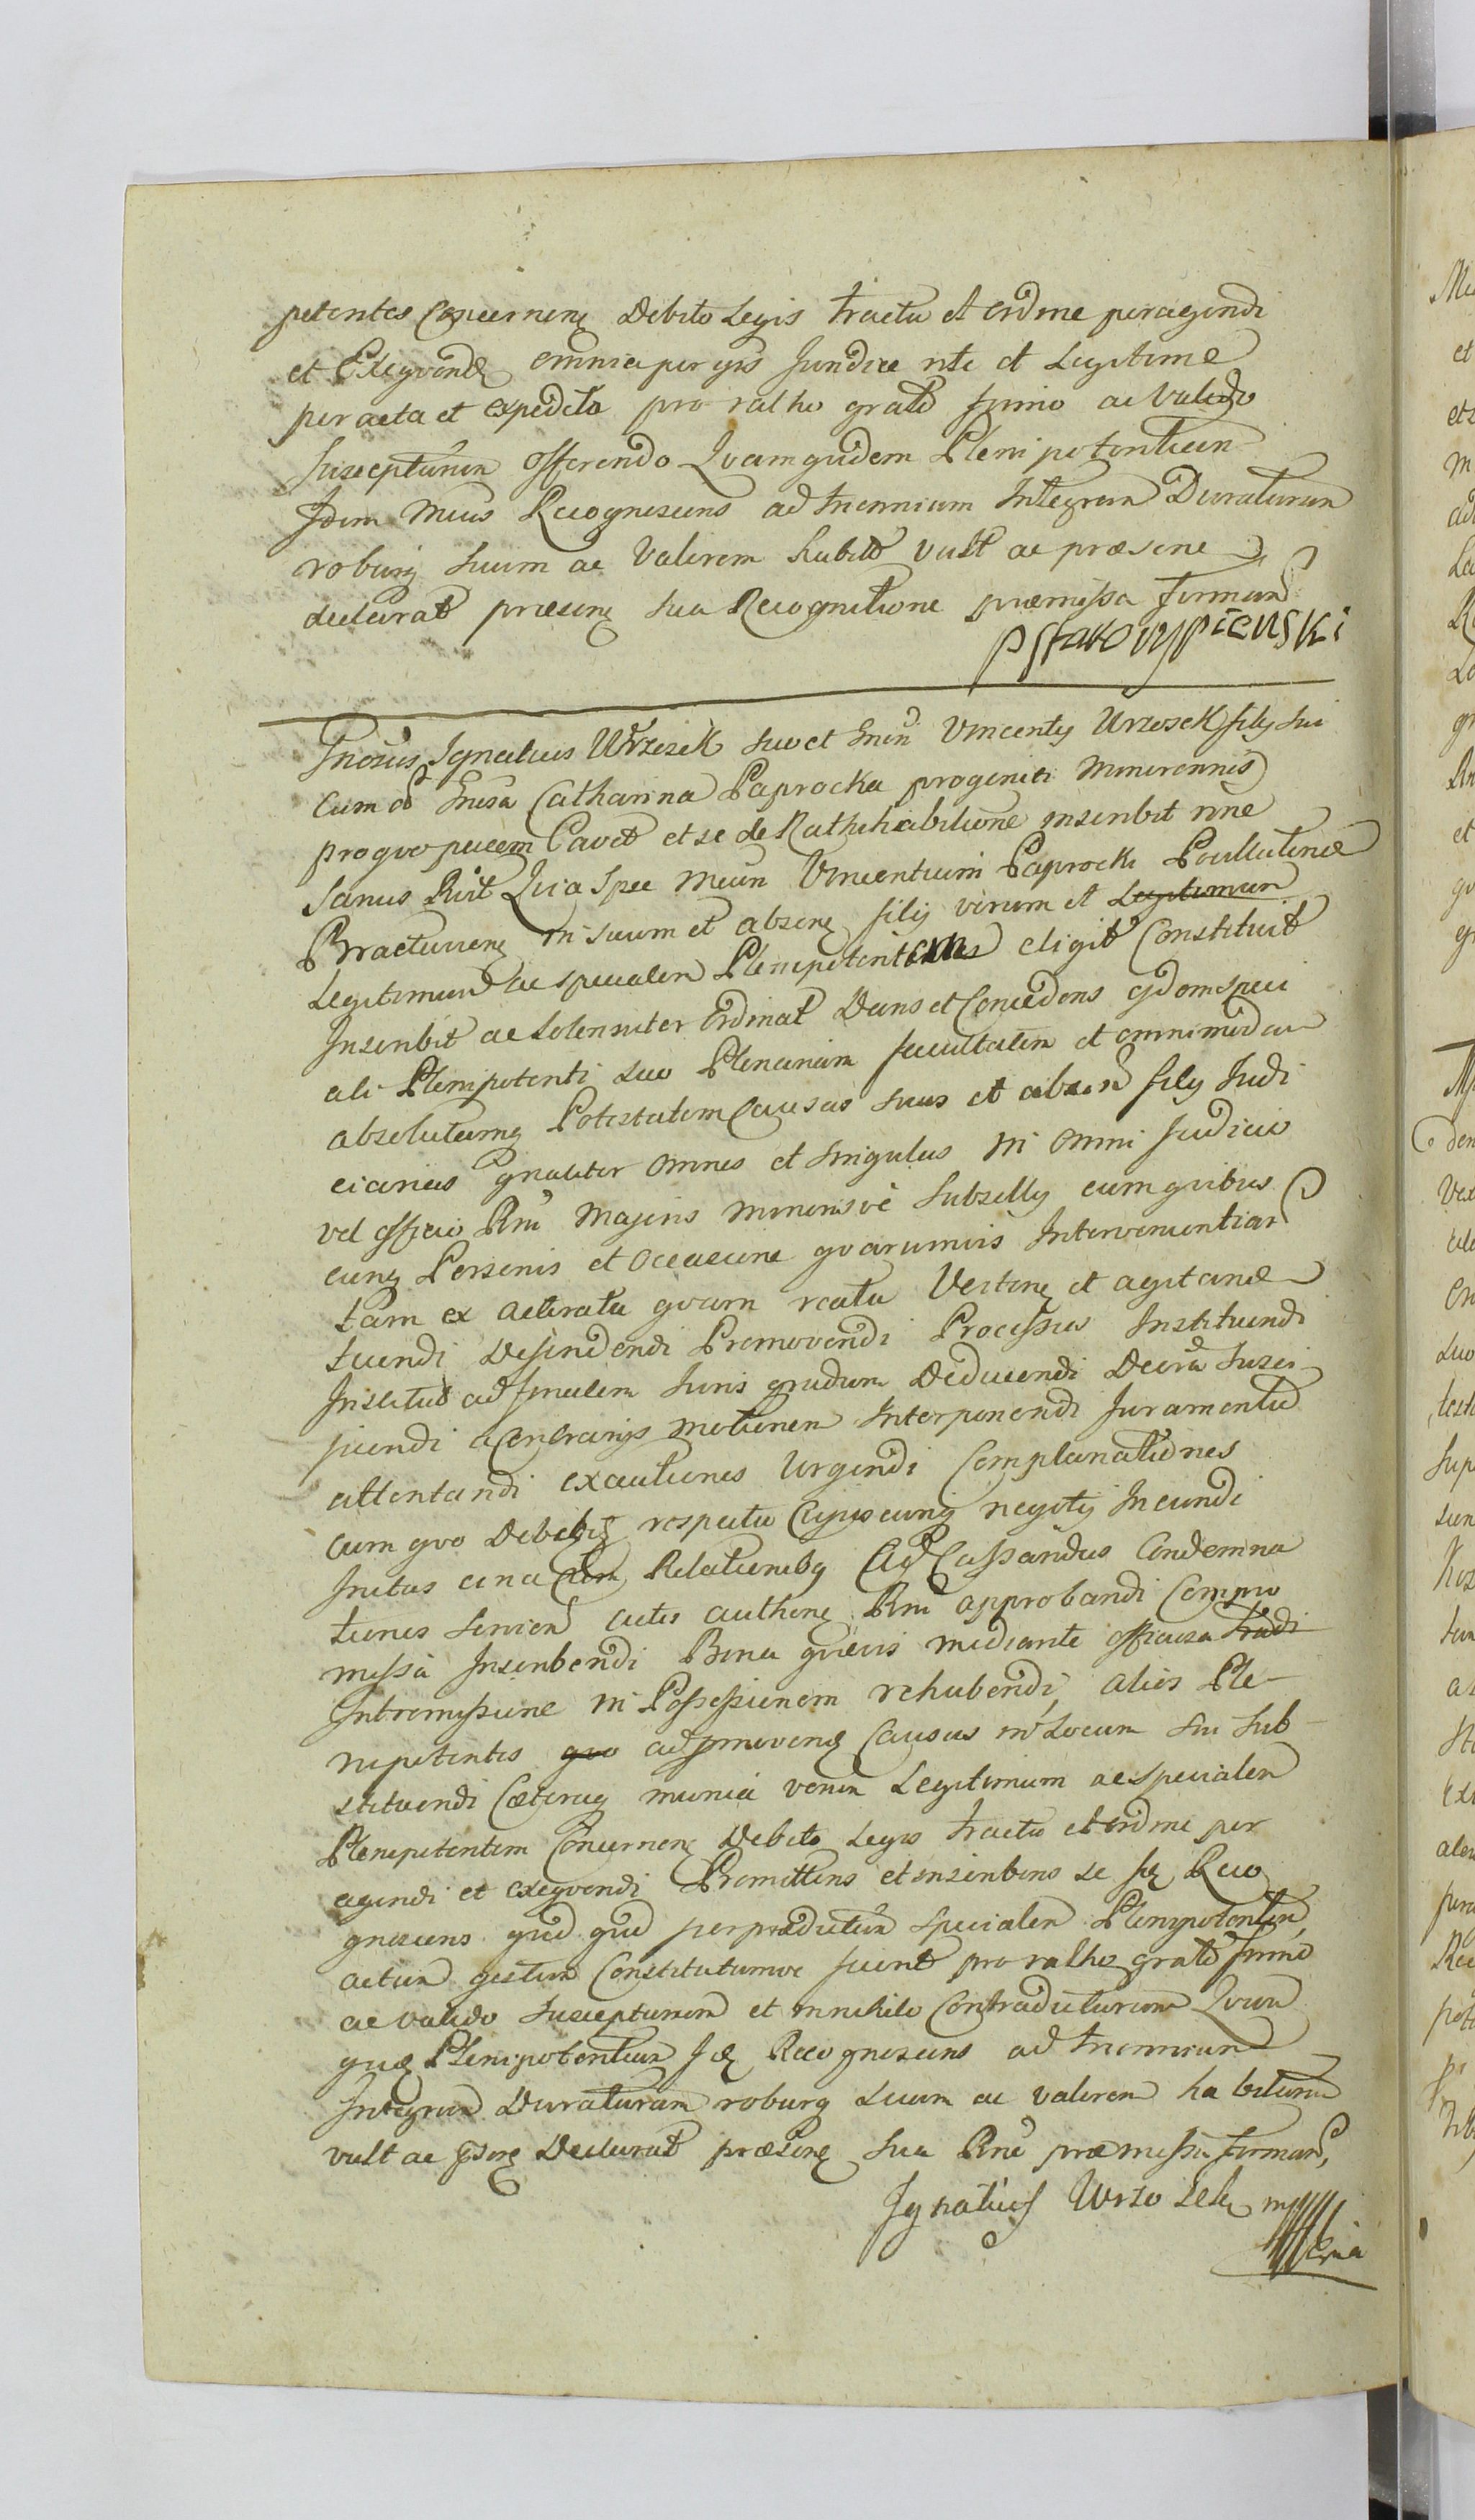 petentes Concernen Debito Legis tractu et ordine peragendi
et Exeqvend omnia per ejus fundice rite et Legitime
peracta et expedita pro ratho grato firmo ac valido
suscepturum offerendo Qvamquidem Plenipotentiam
Idem Mcus Recognoscens ad triennium Integrum Duraturam
roburq suum ac Valorem habit vult ac præsene
declarat præsene sua Recognitione præmissa firman
PStarowypienski
Gnosus Ignatius Wrzosek suo et Gnsi Vincenty Wrzosek filij sui
cum olim Gnosa Catharina Paprocka progeniti Minorennis
pro qvo pacem Cavet et se de Rathihabitione inscribit nne
sanus Rcit Qvia Spec Mcum Vincentium Paprocki Pocillatorid
Bractuvenq in suum et absenq filij verum et Legitimum
Legitimum ac specialem Plenipotentem eligit Constituit
Inscribit ac Solenniter Ordinat Dans et Concedens ejdem speci
ali Plenipotenti suo Plenariam facultatem et omnimodam
absolutamq Potestatem Causas suas et absen filij Judi
ciarias gnaliter omnes et singulas in omni Judicio
vel officio Rni Majoris minorisve subsellij cum qvibus
cunq Personis et occasione qvarumvis Intervenientiar
tam ex actoratu qvam reatu Vertenq et agitand
tuendi Defendendi Promovendi Processus Instituendi
Institut ad finalem Juris gradum Deducendi Decreta Susci
piendi a Contrarijs Motionem Interponendi Juramenta
attentandi exactiones Urgendi Complanationes
cum qvo Debebit respectu Cujuscunq negotij Ineundi
Initas una cum Relationibq Ad Cassandas Condemna
tiones servien actis authenq Rni approbandi Compro
missa Inscribendi Bona qvævis mediante officiosa tradi
Intromissione in Possessionem rehabendi, alios Ple-
nipotentes qvo ad promovenq Causas in Locum sui sub-
stituendi Cæteraq munia verum Legitimum ac specialem
Plenipotentem Concernenq Debito Legis tractu et ordine per
agendi et exeqvendi Promittens et inscribens se Idq Reco
gnoscens qvid qvid per prædictum specialem Plenipotentem,
actum gestum Constitutumve fuerit pro ratho grato firmo
ac valido suscepturum et in nihilo Contradicturum Qvam
quid Plenipotentiam Idq Recognoscens ad triennium
Integrum Duraturam roburq suum ac valorem habituram
vult ac psenq Declarat præsenq sua Rne præmissa firman,
Ignatius Wrzosek mppria